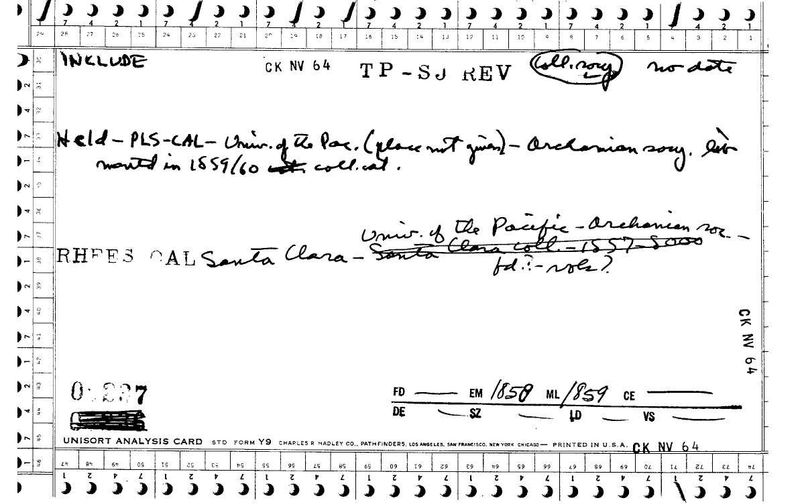 INCLUDE CK NV 64 TP-SJ REV Coll. socy no date
Held - PLS-CAL - Univ. of the Pac. (place not given) - Archanian socy. libr
mentd in 1859/60 coll. cat.
Univ. of the Pacific - Archanian soc -
RHEES CAL Santa Clara - Santa Clara Coll. - 1857 - 5000
fd.? - vols?
CK NV 64
FD EM 1858 ML 1859 CE
DE SZ LD VS
UNISORT ANALYSIS CARD STD FORM Y9 CHARLES R HADLEY CO., PATHFINDERS, LOS ANGELES, SAN FRANCISCO, NEW YORK CHICAGO — PRINTED IN U.S.A. CK NV 64